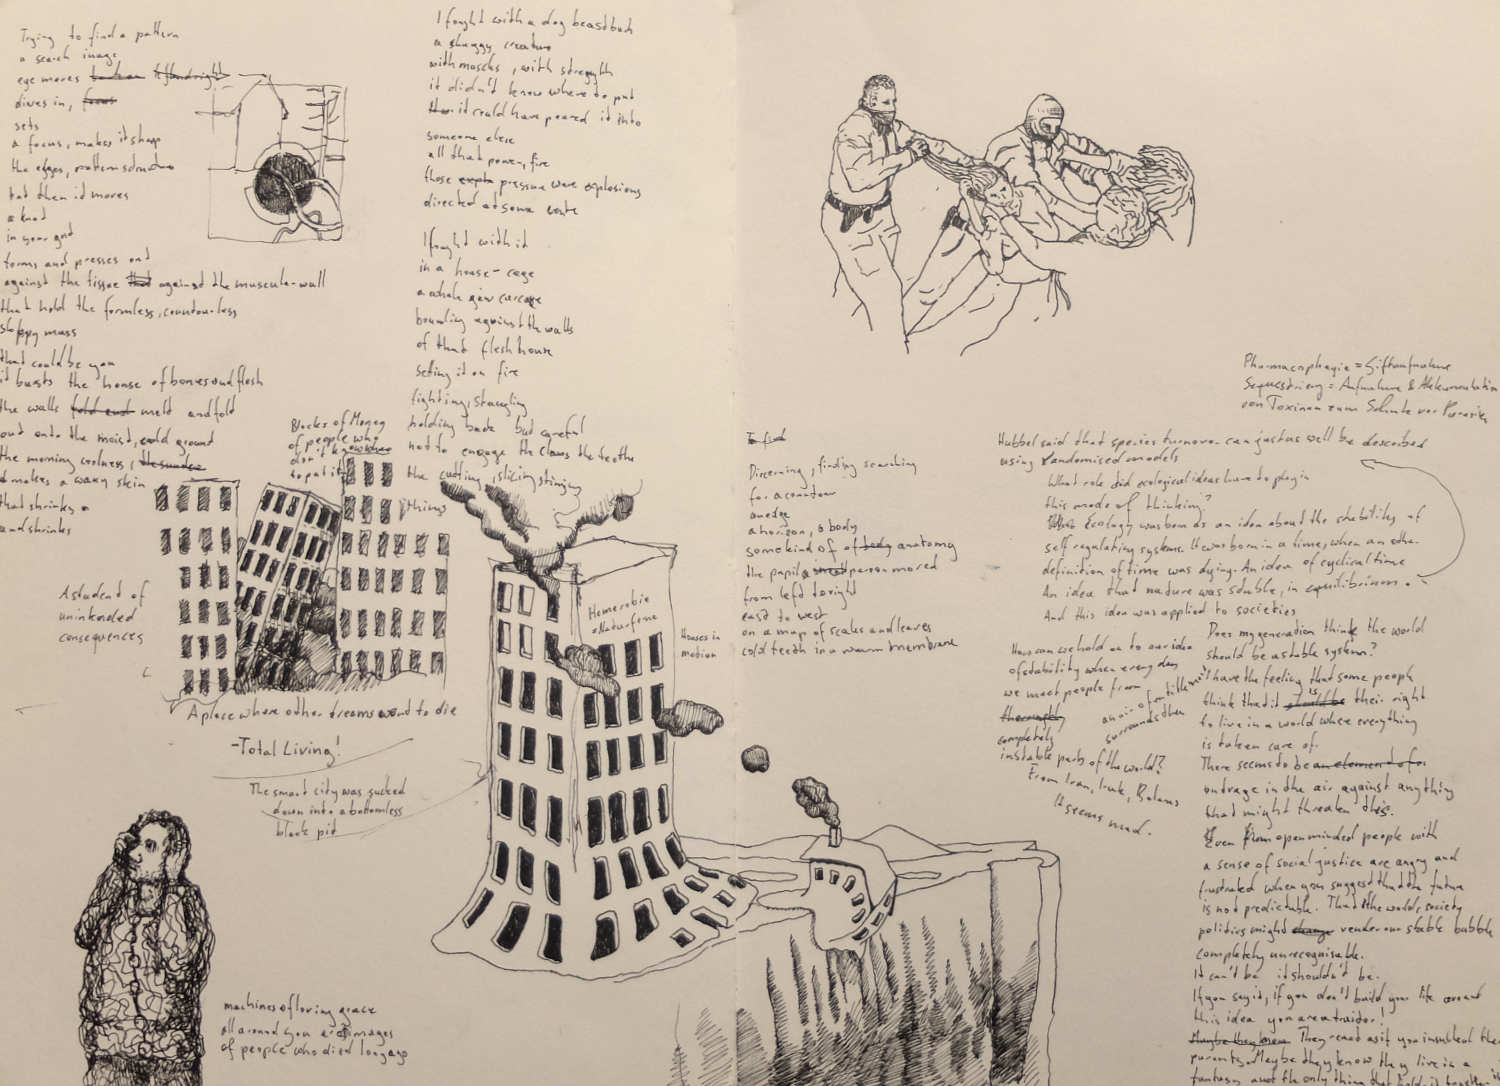 Trying to find a pattern
a search image
eye moves
dives in, focus
sets
a focus, makes it sharp
the edges, pattern structure
but then it moves
a knot
in your gut
forms and presses out
against the tissue that against the muscular-wall
that hold the formless, contourless
sloppy mass
that could be you
it bursts the house of bones and flesh
the walls fold and melt and fold
out onto the moist, cold ground
the morning coolness,
makes a waxy skin
that shrinks
and shrinks
I fought with a dog beast
a shaggy creature
with muscles, with strength
it didn't know where to put
it could have poured it into
someone else
all that power, fire
those pressure were explosions
directed at some
I fought with it
in a house-cage
a whale
bounding against the walls
of that flesh house
setting it on fire
fighting, struggling
holding back but careful
not to engage the claws the teeth
the cutting, slicing stinging
things
Blocks of Money
of people who
don't know where
to put it
A student of
unintended
consequences
A place where other dreams went to die
-Total Living!
The smart city was sucked
down into a bottomless
black pit
Houses in
motion
machines of loving grace
all around you are images
of people who died long ago
To find
Discerning, finding searching
for a contour
an edge
a horizon, a body
some kind of of body anatomy
the pupil person moved
from left to right
east to west
on a map of scales and leaves
cold teeth in a warm membrane
Pharmacophagie = Giftaufnahme
Sequestrierung = Aufnahme & Akkumulation
von Toxinen zum Schutz vor
Hubbel said that species turnover can just as well be described
using randomised models
What role did ecological ideas have to play in
this mode of thinking?
Ecology was born as an idea about the stability of
self regulating systems. It was born in a time, when an other
definition of time was dying. An idea of cyclical time
An idea that nature was stable, in equilibrium.
And this idea was applied to societies
How can we hold on to our idea
of stability when every day
we meet people from
thoroughly
completely
instable parts of the world?
From Iran, Irak, Belarus
It seems mad.
an air of
surrounds them
Does my generation think the world
should be a stable system?
I have the feeling that some people
think that it should be is their right
to live in a world where everything
is taken care of.
There seems to be an element of an
outrage in the air against anything
that might threaten this.
Even from open minded people with
a sense of social justice are angry and
frustrated when you suggest that the future
is not predictable. That the world, society
politics might change render our stable bubble
completely unrecognisable.
It can't be it shouldn't be.
If you say it, if you don't build your life around
this idea you are a traitor!
Maybe they know They react as if you insulted their
parents. Maybe they know they live in a
fantasy and the only thing that